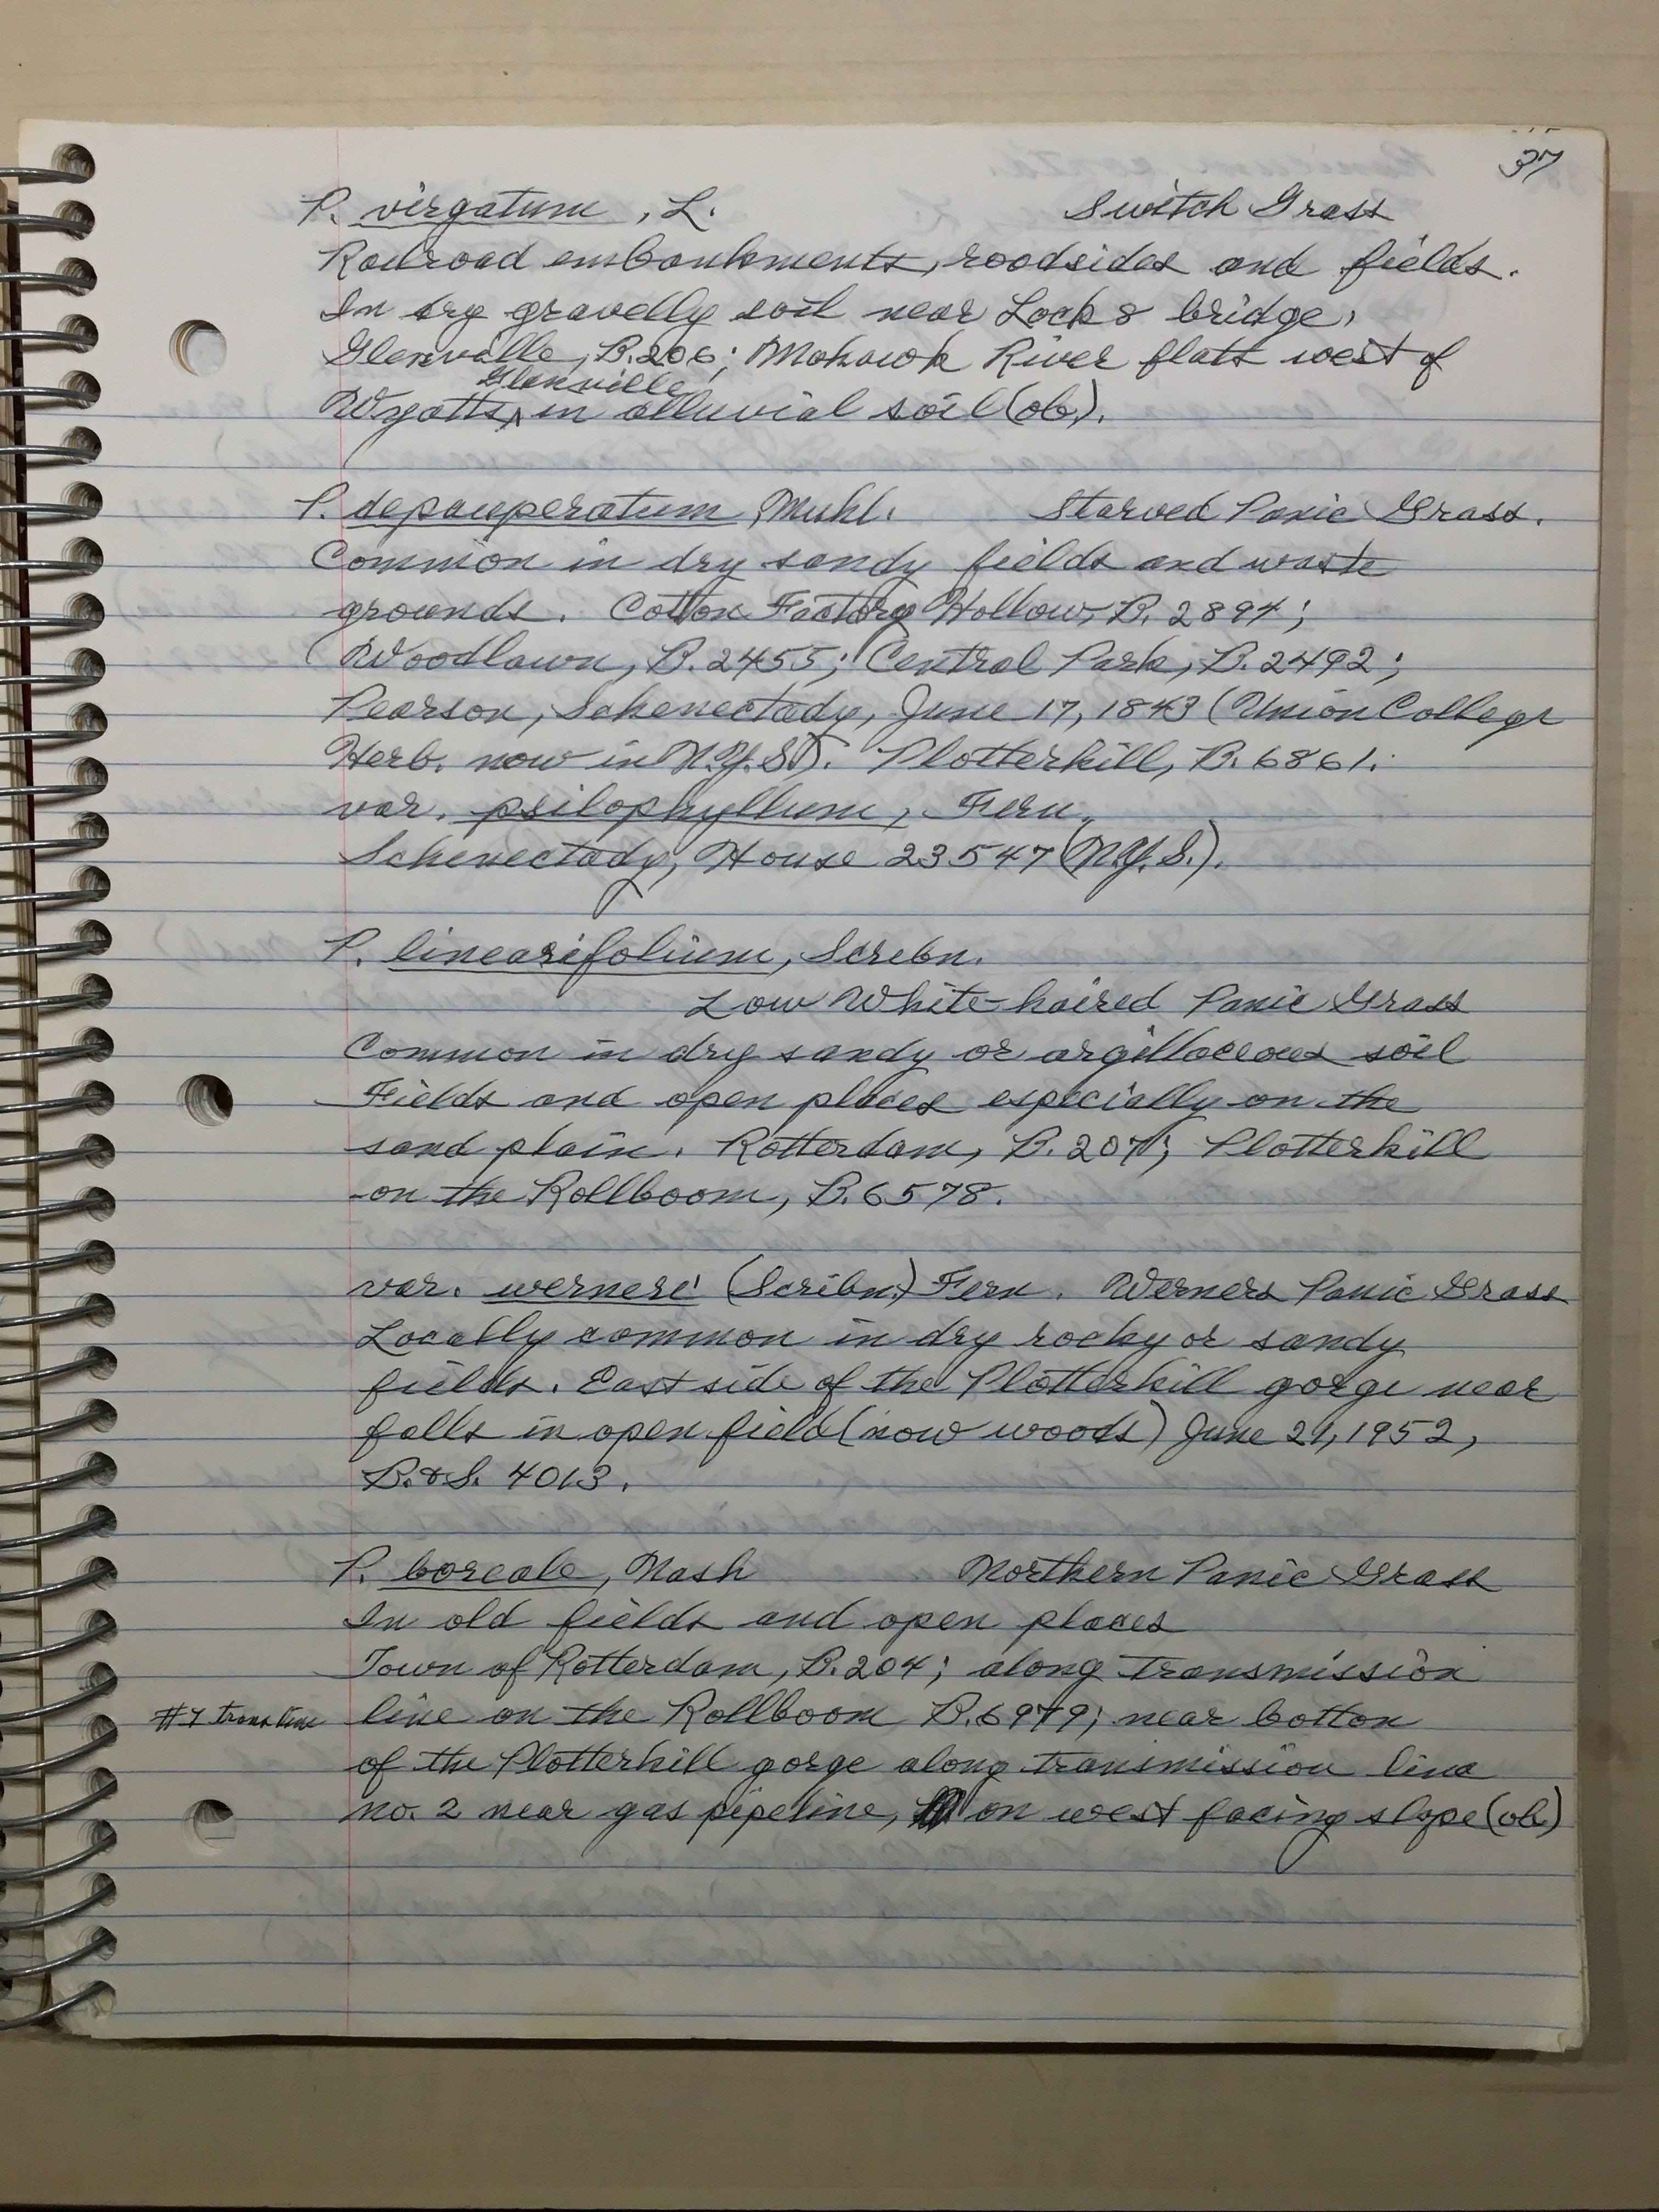 37
P. virgatum, L. Switch Grass
Railroad embankments, roadsides and fields.
In dry gravelly soil near Lock 8 bridge,
Glenville, B.206; Mohawk River flats west of
Glenville
Wyatts, in alluvial soil (ob.).
P. depauperatum, Muhl. Starved Panic Grass.
Common in dry sandy fields and waste
grounds. Cotton Factory Hollow, B. 2894;
Woodlawn, B. 2455; Central Park, B. 2492;
Pearson, Schenectady, June 17, 1843 (Union College
Herb. now in N.Y.S.). Plotterkill, B. 6861.
var. psilophyllum, Fern.
Schenectady, House 23547 (N.Y.S.).
P. linearifolium, Scribn.
Low White-haired Panic Grass
Common in dry sandy or argillaceous soil
Fields and open places especially on the
sand plain. Rotterdam, B. 207; Plotterkill
on the Rollboom, B. 6578.
var. werneri (Scribn.) Fern. Werners Panic Grass
Locally common in dry rocky or sandy
fields. East side of the Plotterkill gorge near
falls in open field (now woods) June 21, 1952,
B. & S. 4013.
P. boreale, Nash Northern Panic Grass
In old fields and open places
Town of Rotterdam, B. 204; along transmission
#7 trans line line on the Rollboom B. 6979; near botton
of the Plotterkill gorge along transmission line
no. 2 near gas pipeline, on west facing slope (ob)